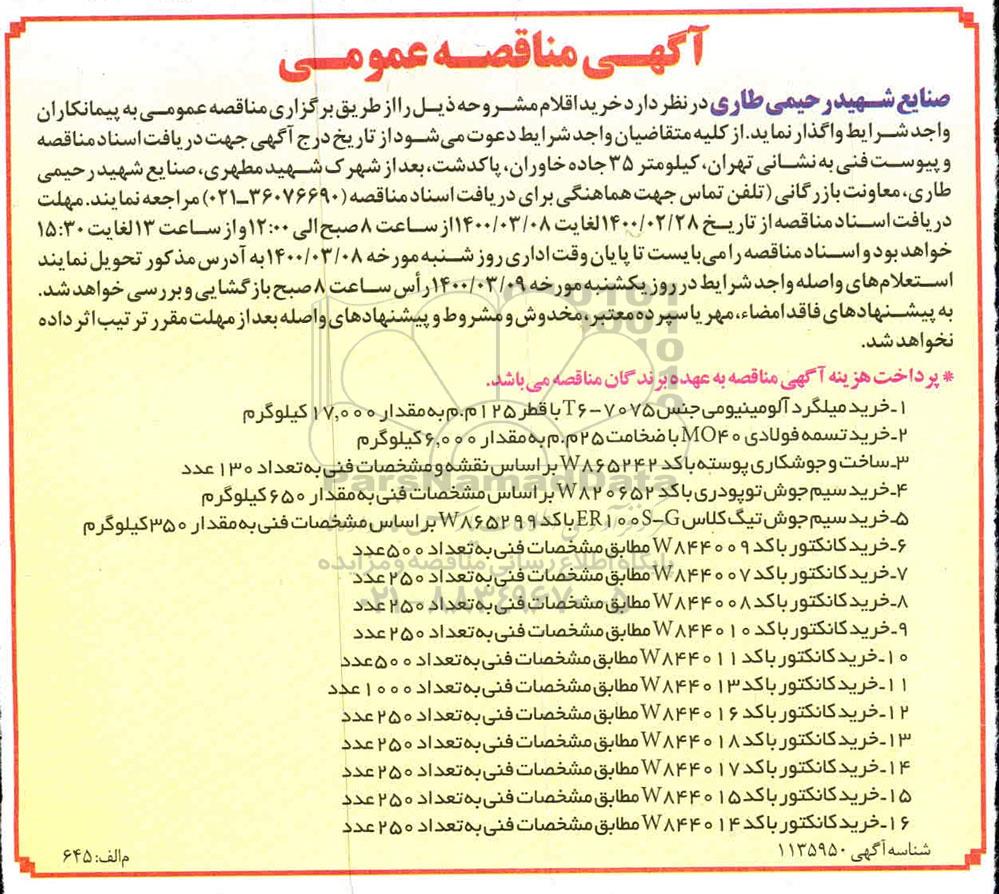 آگهی مناقصه عمومی
صنایع شهید رحیمی طاری در نظر دارد خرید اقلام مشروحه ذیل را از طریق برگزاری مناقصه عمومی به پیمانکاران
واجد شرایط واگذار نماید. از کلیه متقاضیان واجد شرایط دعوت می‌شود از تاریخ درج آگهی جهت دریافت اسناد مناقصه
و پیوست فنی به نشانی تهران، کیلومتر ۳۵ جاده خاوران، پاکدشت، بعد از شهرک شهید مطهری، صنایع شهید رحیمی
طاری، معاونت بازرگانی (تلفن تماس جهت هماهنگی برای دریافت اسناد مناقصه (۳۶۰۷۶۶۹۰-۰۲۱) مراجعه نمایند. مهلت
دریافت اسناد مناقصه از تاریخ ۱۴۰۰/۰۲/۲۸ لغایت ۱۴۰۰/۰۳/۰۸ از ساعت ۸ صبح الی ۱۲:۰۰ و از ساعت ۱۳ لغایت ۱۵:۳۰
خواهد بود و اسناد مناقصه را می‌بایست تا پایان وقت اداری روز شنبه مورخه ۱۴۰۰/۰۳/۰۸ به آدرس مذکور تحویل نمایند
استعلام‌های واصله واجد شرایط در روز یکشنبه مورخه ۱۴۰۰/۰۳/۰۹ رأس ساعت ۸ صبح بازگشایی و بررسی خواهد شد.
به پیشنهادهای فاقد امضاء، مهر یا سپرده معتبر، مخدوش و مشروط و پیشنهادهای واصله بعد از مهلت مقرر ترتیب اثر داده
نخواهد شد.
* پرداخت هزینه آگهی مناقصه به عهده برندگان مناقصه می باشد.
۱ـ خرید میلگرد آلومینیومی جنس ۷۰۷۵-T۶ با قطر ۱۲۵ م.م به مقدار ۱۷,۰۰۰ کیلوگرم
۲ـ خرید تسمه فولادی MO۴۰ با ضخامت ۲۵ م.م به مقدار ۶,۰۰۰ کیلوگرم
۳ـ ساخت و جوشکاری پوسته با کد W۸۶۵۲۴۲ بر اساس نقشه و مشخصات فنی به تعداد ۱۳۰ عدد
۴ـ خرید سیم جوش توپودری با کد W۸۲۰۶۵۲ بر اساس مشخصات فنی به مقدار ۶۵۰ کیلوگرم
۵ـ خرید سیم جوش تیگ کلاس ER۱۰۰S-G با کد W۸۶۵۲۹۹ بر اساس مشخصات فنی به مقدار ۳۵۰ کیلوگرم
۶ـ خرید کانکتور با کد W۸۴۴۰۰۹ مطابق مشخصات فنی به تعداد ۵۰۰ عدد
۷ـ خرید کانکتور با کد W۸۴۴۰۰۷ مطابق مشخصات فنی به تعداد ۲۵۰ عدد
۸ـ خرید کانکتور با کد W۸۴۴۰۰۸ مطابق مشخصات فنی به تعداد ۲۵۰ عدد
۹ـ خرید کانکتور با کد W۸۴۴۰۱۰ مطابق مشخصات فنی به تعداد ۲۵۰ عدد
۱۰ـ خرید کانکتور با کد W۸۴۴۰۱۱ مطابق مشخصات فنی به تعداد ۵۰۰ عدد
۱۱ـ خرید کانکتور با کد W۸۴۴۰۱۳ مطابق مشخصات فنی به تعداد ۱۰۰۰ عدد
۱۲ـ خرید کانکتور با کد W۸۴۴۰۱۶ مطابق مشخصات فنی به تعداد ۲۵۰ عدد
۱۳ـ خرید کانکتور با کد W۸۴۴۰۱۸ مطابق مشخصات فنی به تعداد ۲۵۰ عدد
۱۴ـ خرید کانکتور با کد W۸۴۴۰۱۷ مطابق مشخصات فنی به تعداد ۲۵۰ عدد
۱۵ـ خرید کانکتور با کد W۸۴۴۰۱۵ مطابق مشخصات فنی به تعداد ۲۵۰ عدد
۱۶ـ خرید کانکتور با کد W۸۴۴۰۱۴ مطابق مشخصات فنی به تعداد ۲۵۰ عدد
شناسه آگهی ۱۱۳۵۹۵۰
م الف: ۶۴۵
ParsNamadData
پایگاه اطلاع رسانی مناقصه و مزایده